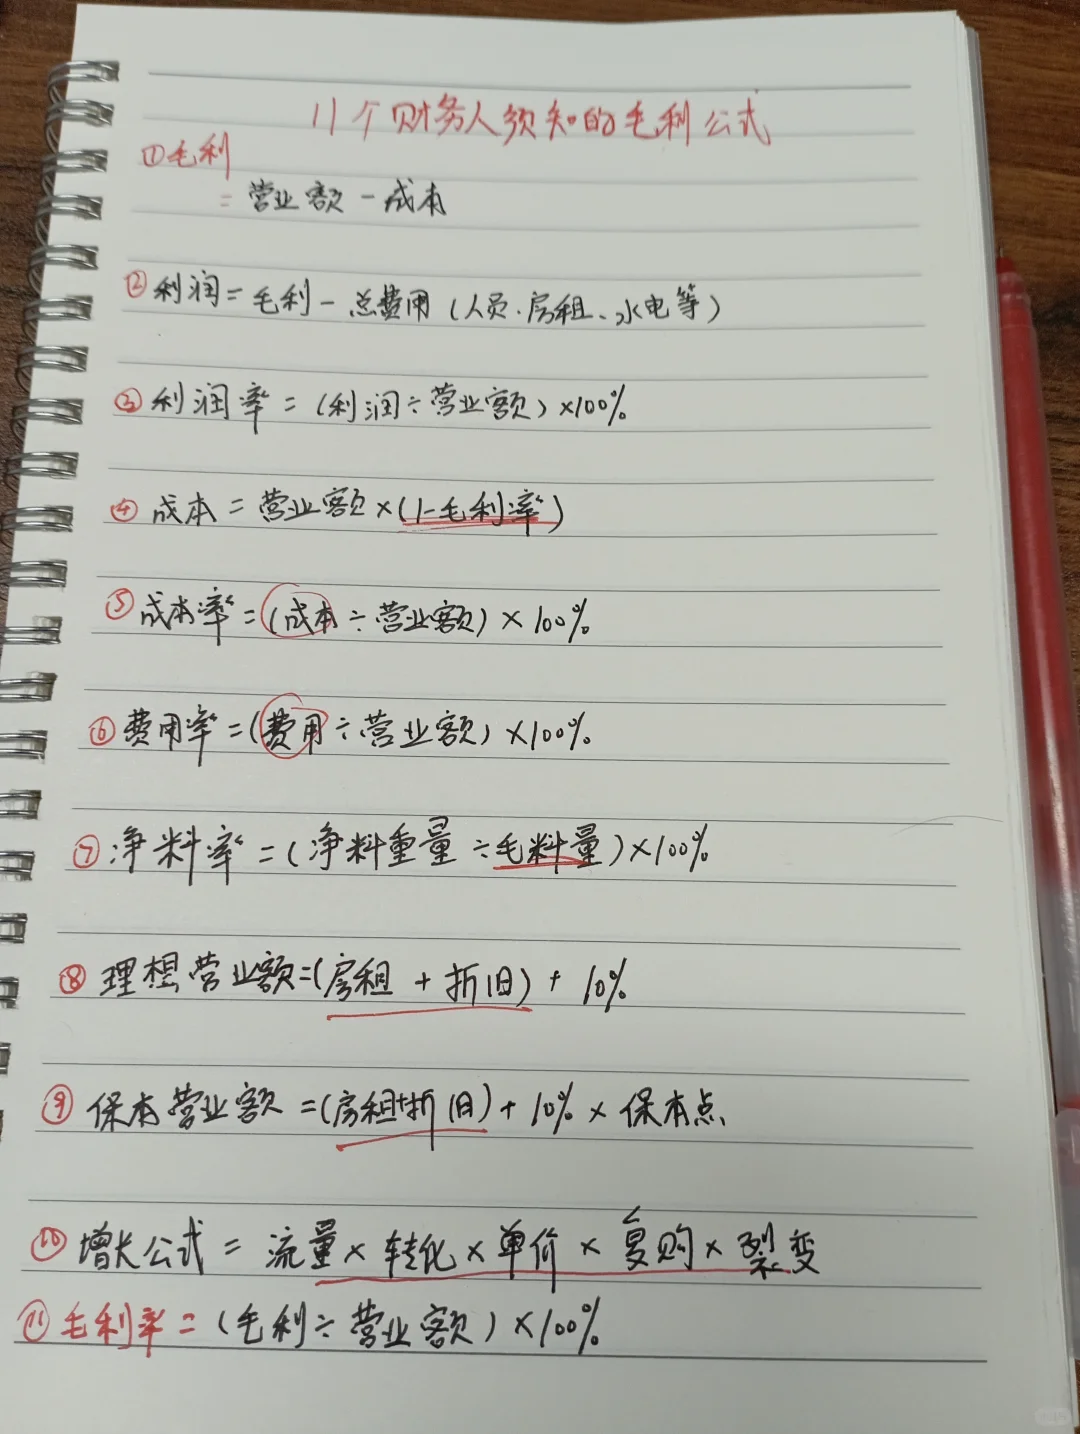 11个财务人须知的毛利公式
①毛利
= 营业额 - 成本
②利润 = 毛利 - 总费用 (人员、房租、水电等)
③利润率 = (利润÷营业额) ×100%
④成本 = 营业额×(1-毛利率)
⑤成本率 = (成本÷营业额) × 100%
⑥费用率 = (费用÷营业额) ×100%
⑦净料率 = (净料重量÷毛料量) ×100%
⑧理想营业额=(房租 + 折旧) + 10%
⑨保本营业额 =(房租+折旧) + 10% × 保本点
⑩增长公式 = 流量× 转化 × 单价 × 复购 × 裂变
⑪毛利率 = (毛利÷营业额) ×100%